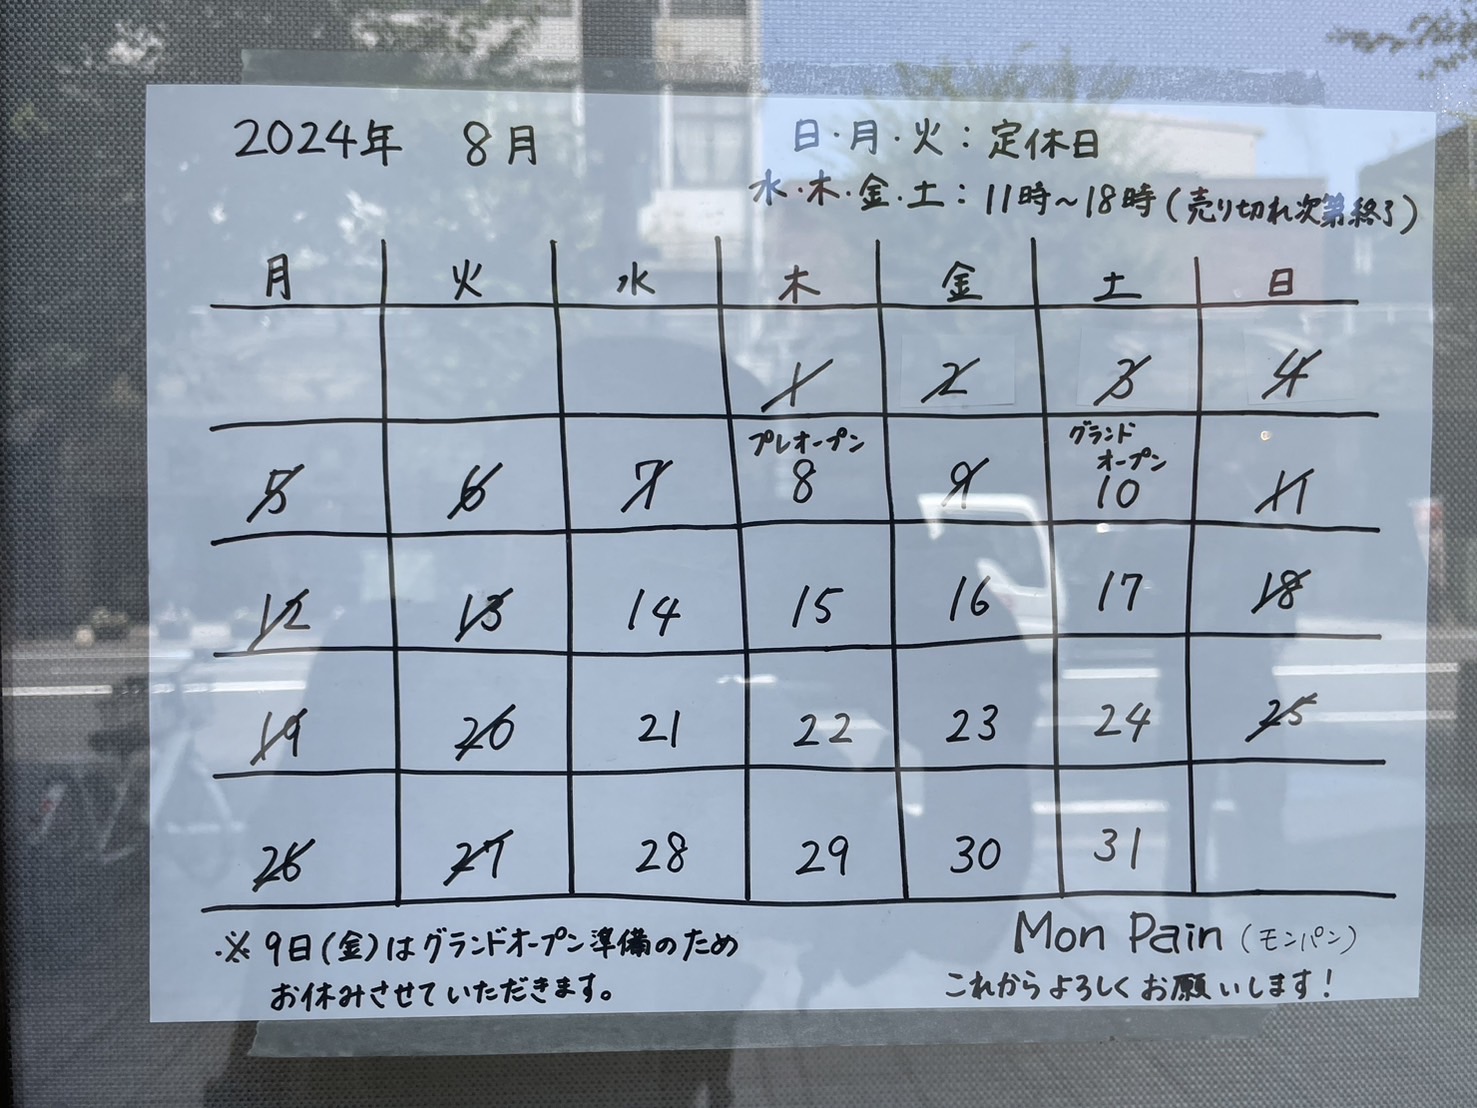 2024年 8月
日・月・火：定休日
水・木・金・土：11時～18時（売り切れ次第終了）
月 火 水 木 金 土 日
1 2 3 4
プレオープン グランド
オープン
5 6 7 8 9 10 11
12 13 14 15 16 17 18
19 20 21 22 23 24 25
26 27 28 29 30 31
※ 9日(金)はグランドオープン準備のため
お休みさせていただきます。
Mon Pain（モンパン）
これからよろしくお願いします！